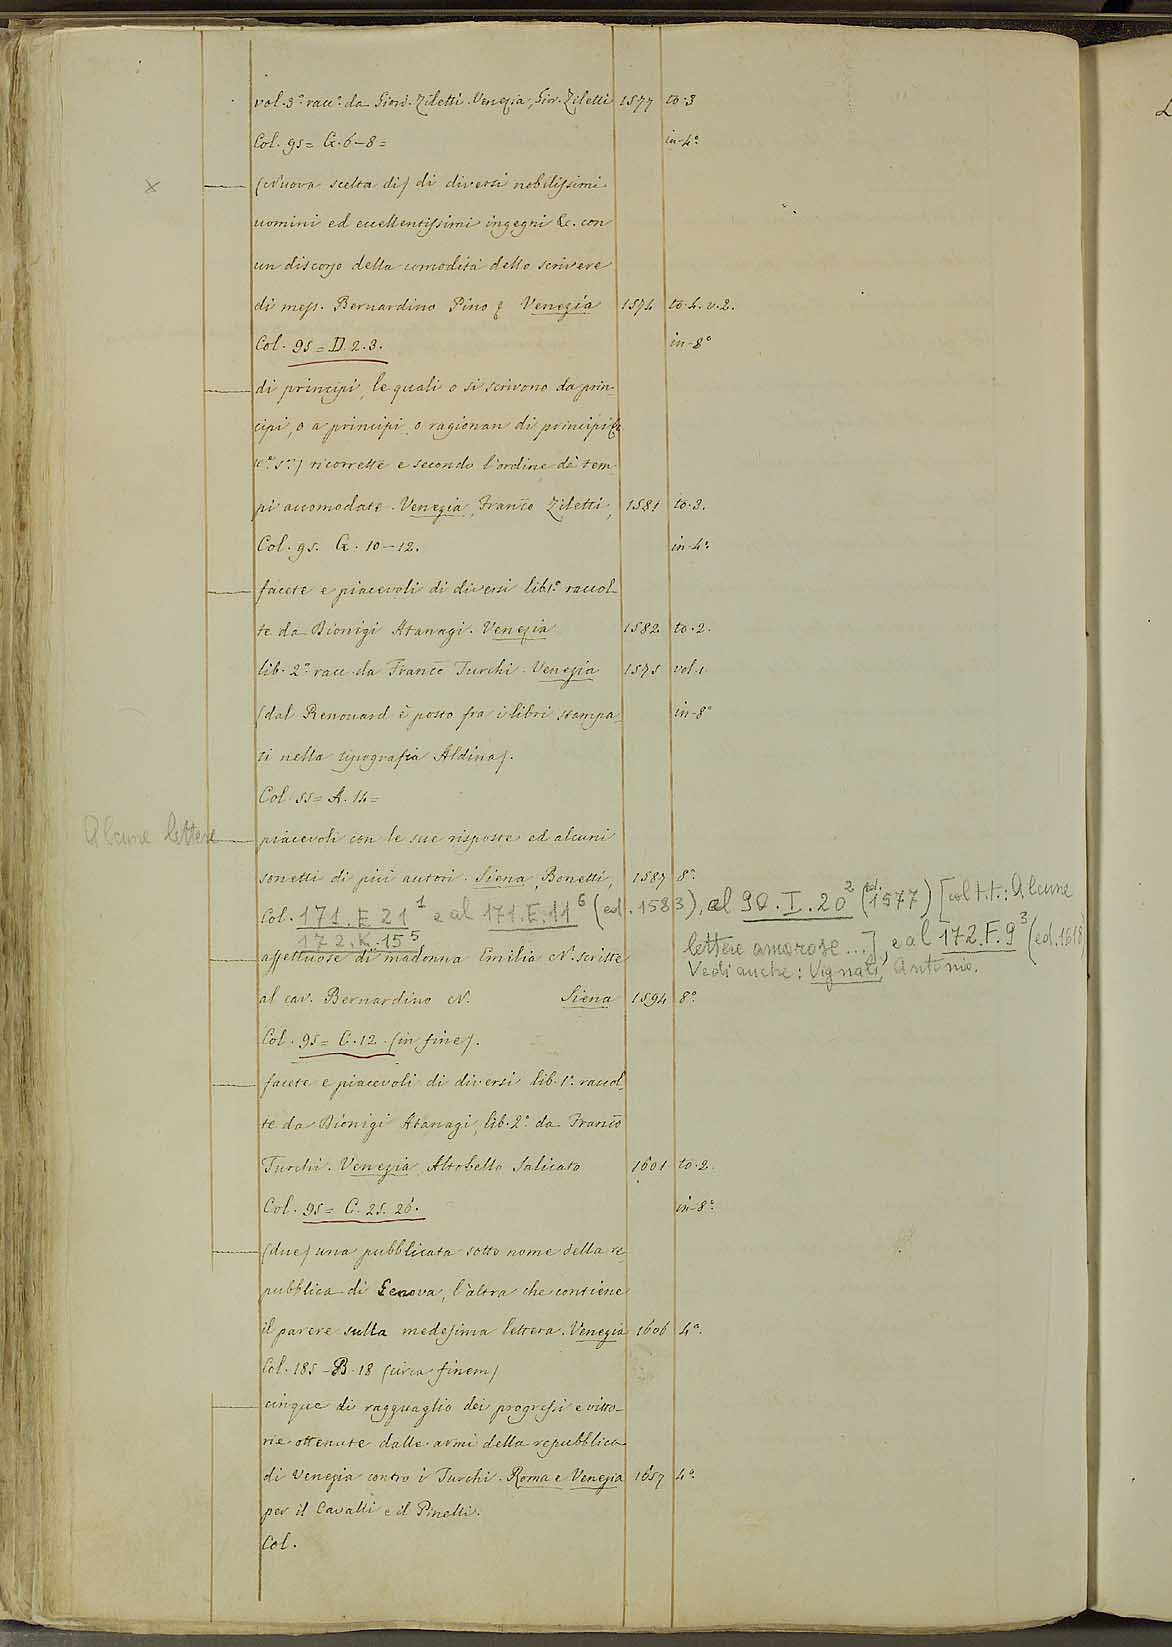 vol. 3.° racc.° da Giord. Ziletti. Venezia, Gior. Ziletti 1577 to. 3
Col. 95 = G. 6-8 = in-4.°
(Nuova scelta di) di diversi nobilissimi
uomini ed eccellentissimi ingegni &c. con
un discorso della comodità dello scrivere
di mess. Bernardino Pino Venezia 1574 to. 4. v. 2.
Col. 95 = D. 2. 3. in-8°
di principi, le quali o si scrivono da prin-
cipi, o a principi, o ragionan di principi &c
ricorrette e secondo l'ordine dè tem-
pi accomodate. Venezia, Franco Ziletti, 1581 to. 3.
Col. 95. G. 10-12. in-4.°
facete e piacevoli di diversi lib. 1.° raccol-
te da Dionigi Atanagi. Venezia 1582 to. 2.
lib. 2.° racc. da Franco Turchi. Venezia 1575 vol. 1.
(dal Renouard è posto fra i libri stampa- in-8°
ti nella tipografia Aldina).
Col. 55 = A. 14 =
Alcune lettere piacevoli con le sue risposte ed alcuni
sonetti di più autori. Siena, Bonetti, 1587 8.°
Col. 171. E 21¹ e al 171. E. 11⁶ (ed. 1583), al 90. I. 20² (ed. 1577) [col tit.: Alcune
172. K. 15⁵ lettere amorose ...], e al 172. F. 9³ (ed. 1618)
Vedi anche: Vignali, Antonio.
affettuose di madonna Emilia N. scritte
al cav. Bernardino N. Siena 1594 8.°
Col. 95 = C. 12. (in fine).
facete e piacevoli di diversi lib. 1.° raccol-
te da Dionigi Atanagi, lib. 2.° da Franco
Turchi. Venezia, Altobello Salicato 1601 to. 2.
Col. 95 = C. 25. 26. in-8.°
(due) una pubblicata sotto nome della re-
pubblica di Genova, l'altra che contiene
il parere sulla medesima lettera. Venezia 1606 4.°
Col. 185 - B. 18 (circa finem)
cinque di ragguaglio dei progressi e vitto-
rie ottenute dalle armi della repubblica
di Venezia contro i Turchi. Roma e Venezia 1657 4.°
per il Cavalli e il Pinelli.
Col.